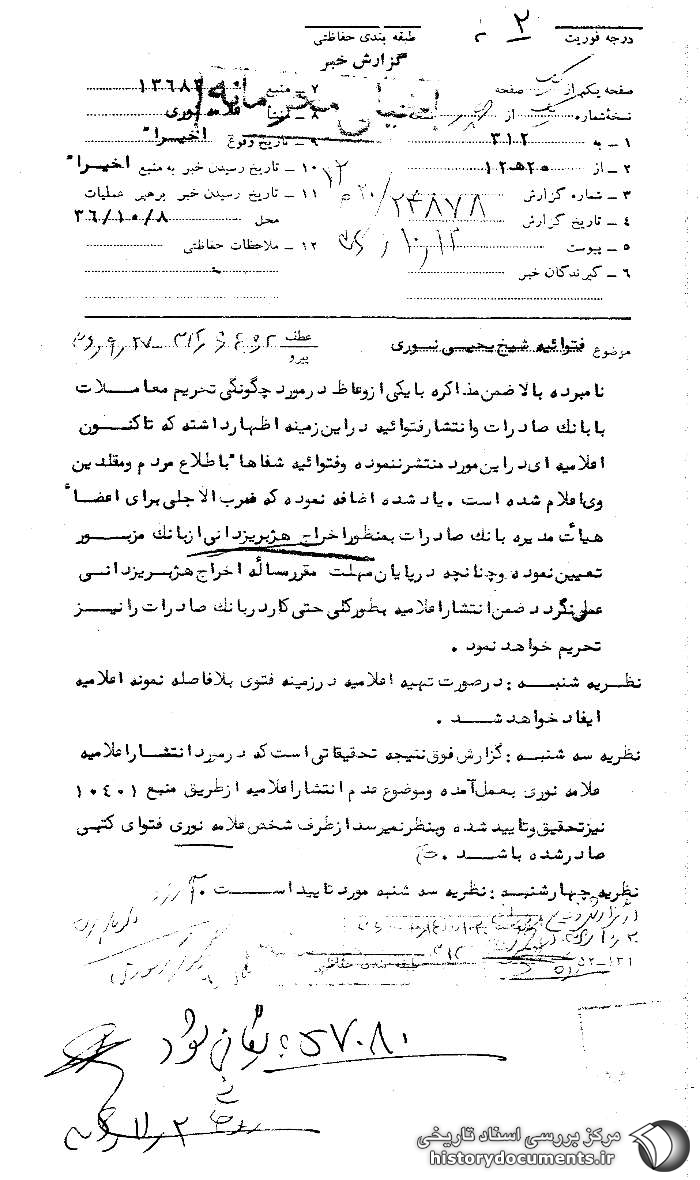 درجه فوریت
طبقه بندی حفاظتی
گزارش خبر
صفحه یکم از یک صفحه
نسخه شماره از
۱ ـ به ۳۱۲
۲ ـ از ۲۰هـ۱۲
۳ ـ شماره گزارش ۲۴۸۷۸/۲۰هـ۱۲
۴ ـ تاریخ گزارش
۵ ـ پیوست
۶ ـ گیرندگان خبر
۷ ـ منبع ۱۳۶۸۳
۸ ـ منشأ علامه نوری
۹ ـ تاریخ وقوع اخیراً
۱۰ ـ تاریخ رسیدن خبر به منبع اخیراً
۱۱ ـ تاریخ رسیدن خبر برهبر عملیات
محل ۳۶/۱۰/۸
۱۲ ـ ملاحظات حفاظتی
خیلی محرمانه
موضوع فتوائیه شیخ یحیی نوری
عطف
پیرو
نامبرده بالا ضمن مذاکره با یکی از وعاظ در مورد چگونگی تحریم معاملات
با بانک صادرات وانتشار فتوائیه در این زمینه اظهار داشته که تاکنون
اعلامیه ای در این مورد منتشر ننموده و فتوائیه شفاهاً باطلاع مردم ومقلدین
وی اعلام شده است . یاد شده اضافه نموده که ضرب الاجلی برای اعضاً
هیأت مدیره بانک صادرات بمنظور اخراج هژبر یزدانی از بانک مزبور
تعیین نموده و چنانچه در پایان مهلت مقرر مسأله اخراج هژبر یزدانی
عملی نگردد ضمن انتشار اعلامیه بطور کلی حتی کار در بانک صادرات را نیز
تحریم خواهد نمود .
نظریه شنبه : در صورت تهیه اعلامیه در زمینه فتوی بلافاصله نمونه اعلامیه
ایفاد خواهد شد .
نظریه سه شنبه : گزارش فوق نتیجه تحقیقاتی است که در مورد انتشار اعلامیه
علامه نوری بعمل آمده وموضوع عدم انتشار اعلامیه از طریق منبع ۱۰۴۰۱
نیز تحقیق و تایید شده و بنظر نمیرسد از طرف شخص علامه نوری فتوای کتبی
صادر شده باشد .
نظریه چهارشنبه : نظریه سه شنبه مورد تایید است .
طبقه بندی حفاظتی
۵۷۰۸۰ بایگانی شود
مرکز بررسی اسناد تاریخی
historydocuments.ir